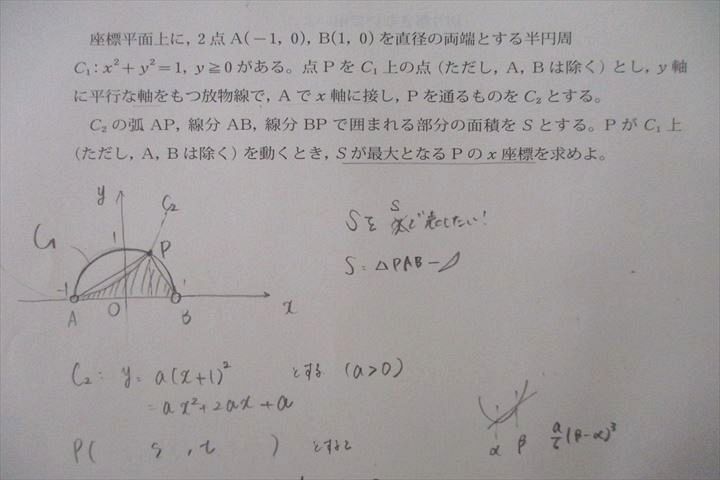 座標平面上に，2点A(−1, 0)，B(1, 0)を直径の両端とする半円周
C₁：x²＋y²＝1，y≧0がある。点PをC₁上の点（ただし，A，Bは除く）とし，y軸
に平行な軸をもつ放物線で，Aでx軸に接し，Pを通るものをC₂とする。
C₂の弧AP，線分AB，線分BPで囲まれる部分の面積をSとする。PがC₁上
（ただし，A，Bは除く）を動くとき，Sが最大となるPのx座標を求めよ。
y
C₂
C₁
1
P
-1
1
A
O
B
x
S
Sを で表したい!
S = △PAB −
C₂: y = a(x+1)² とする (a>0)
= ax²+2ax+a
α β
a/6 (β−α)³
P( s , t ) とすると